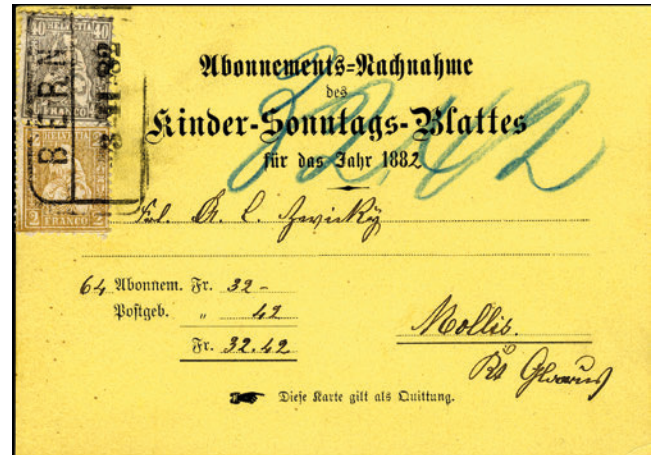 40 HELVETIA 40
FRANCO
HELVETIA
2 FRANCO 2
BERN
Abonnements-Nachnahme
des
Kinder-Sonntags-Blattes
für das Jahr 1882
3242
Frl. A. C. Zwicky
64 Abonnem. Fr. 32 -
Postgeb. " 42
Fr. 32.42
Mollis.
Kt Glarus
Diese Karte gilt als Quittung.